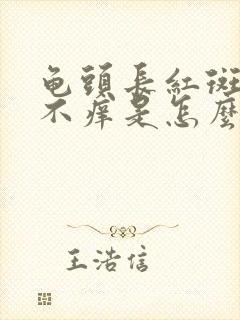 龟頭長紅斑
不痒是怎麼
王浩信